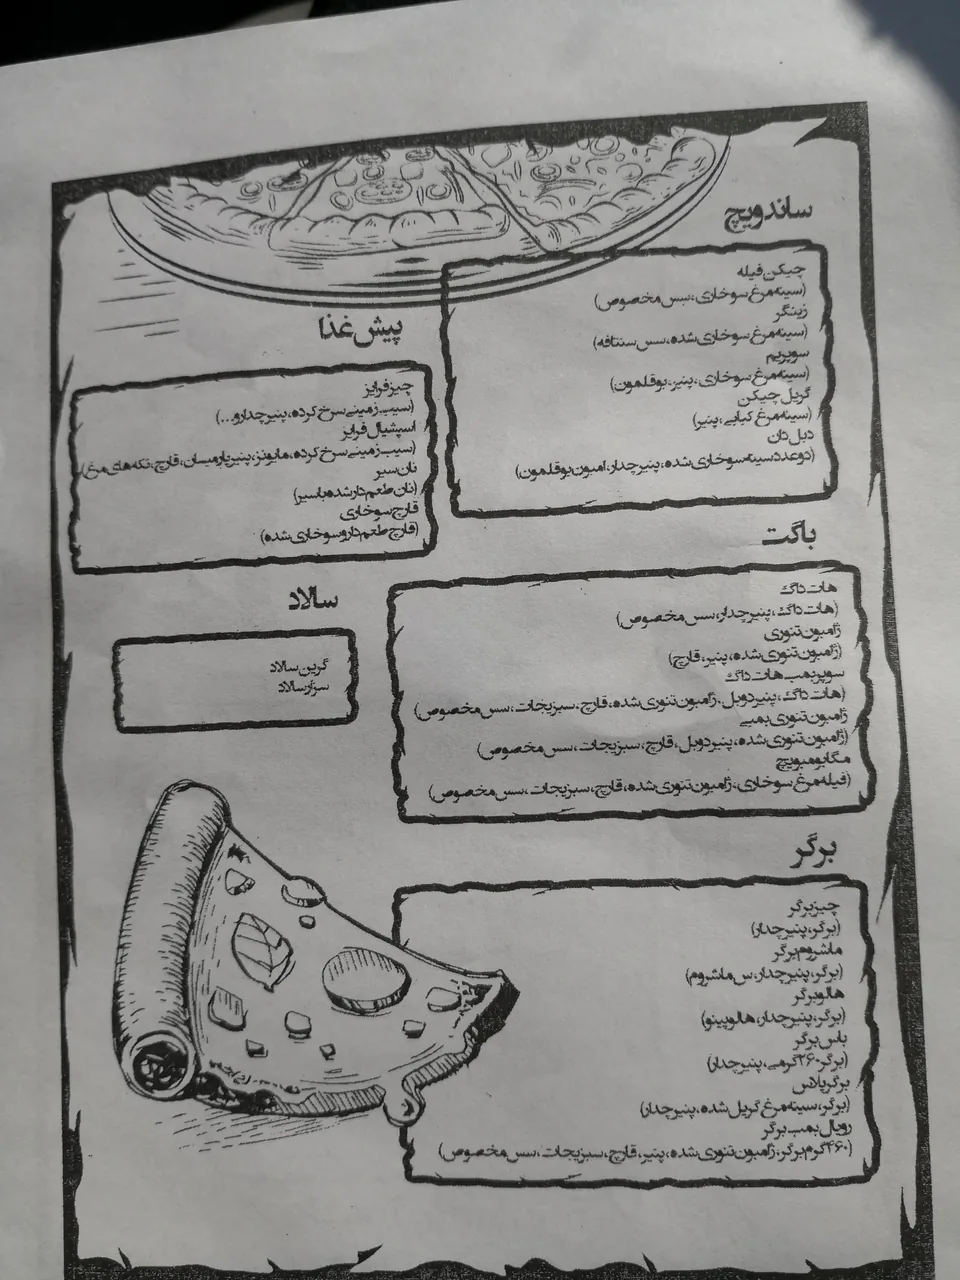 ساندویچ
چیکن فیله
(سینه مرغ سوخاری، سس مخصوص)
زینگر
(سینه مرغ سوخاری شده، سس سنتافه)
سوپریم
(سینه مرغ سوخاری، پنیر، بوقلمون)
گریل چیکن
(سینه مرغ کبابی، پنیر)
دبل دان
(دو عدد سینه سوخاری شده، پنیر چدار، امبون بوقلمون)
پیش غذا
چیز فرایز
(سیب زمینی سرخ کرده، پنیر چدارو...)
اسپشیال فرایز
(سیب زمینی سرخ کرده، مایونز، پنیر پارمیسان، قارچ، تکه های مرغ)
نان سیر
(نان طعم دار شده با سیر)
قارچ سوخاری
(قارچ طعم دار و سوخاری شده)
باگت
هات داگ
(هات داگ، پنیر چدار، سس مخصوص)
ژامبون تنوری
(ژامبون تنوری شده، پنیر، قارچ)
سوپر بمب هات داگ
(هات داگ، پنیر دوبل، ژامبون تنوری شده، قارچ، سبزیجات، سس مخصوص)
ژامبون تنوری بمبی
(ژامبون تنوری شده، پنیر دوبل، قارچ، سبزیجات، سس مخصوص)
مگا بومبویچ
(فیله مرغ سوخاری، ژامبون تنوری شده، قارچ، سبزیجات، سس مخصوص)
سالاد
گرین سالاد
سزار سالاد
برگر
چیز برگر
(برگر، پنیر چدار)
ماشروم برگر
(برگر، پنیر چدار، س ماشروم)
هالو برگر
(برگر، پنیر چدار، هالوپینو)
باس برگر
(برگر ۲۶۰ گرمی، پنیر چدار)
برگر پلاس
(برگر، سینه مرغ گریل شده، پنیر چدار)
رویال بمب برگر
(۴۶۰ گرم برگر، ژامبون تنوری شده، پنیر، قارچ، سبزیجات، سس مخصوص)